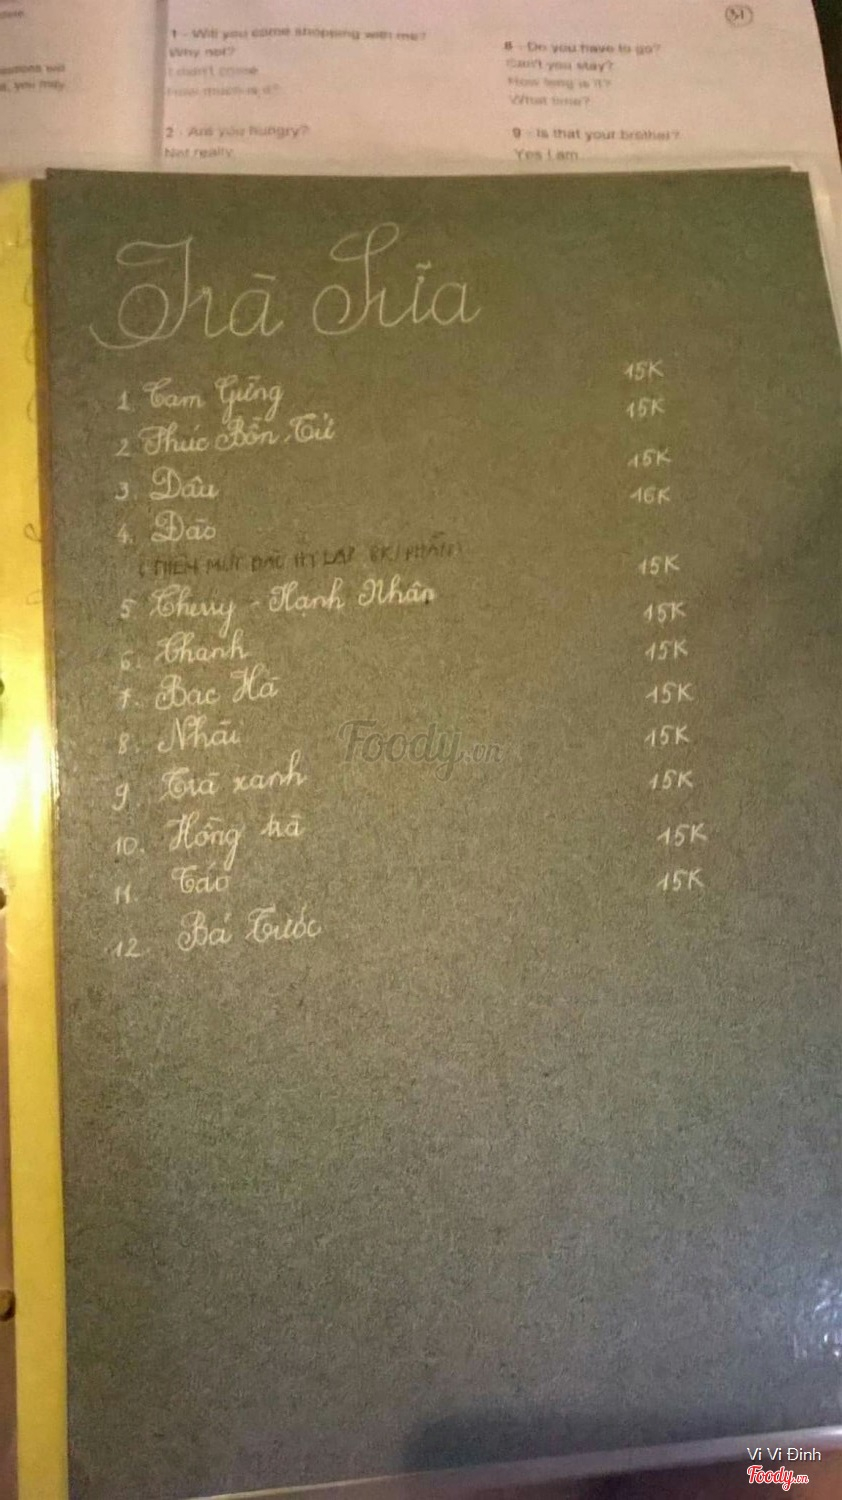 31
1 - Will you come shopping with me?
Why not?
I didn't come
How much is it?
2 - Are you hungry?
Not really
8 - Do you have to go?
Can't you stay?
How long is it?
What time?
9 - Is that your brother?
Yes I am
you may
Trà Sữa
1. Cam Gừng 15K
2. Phúc Bồn Tử 15K
3. Dâu 15K
4. Đào 16K
5. Cherry - Hạnh Nhân 15K
6. Chanh 15K
7. Bạc Hà 15K
8. Nhài 15K
9. Trà xanh 15K
10. Hồng trà 15K
11. Táo 15K
12. Bá Tước 15K
Foody.vn
Vi Vi Đinh
Foody.vn